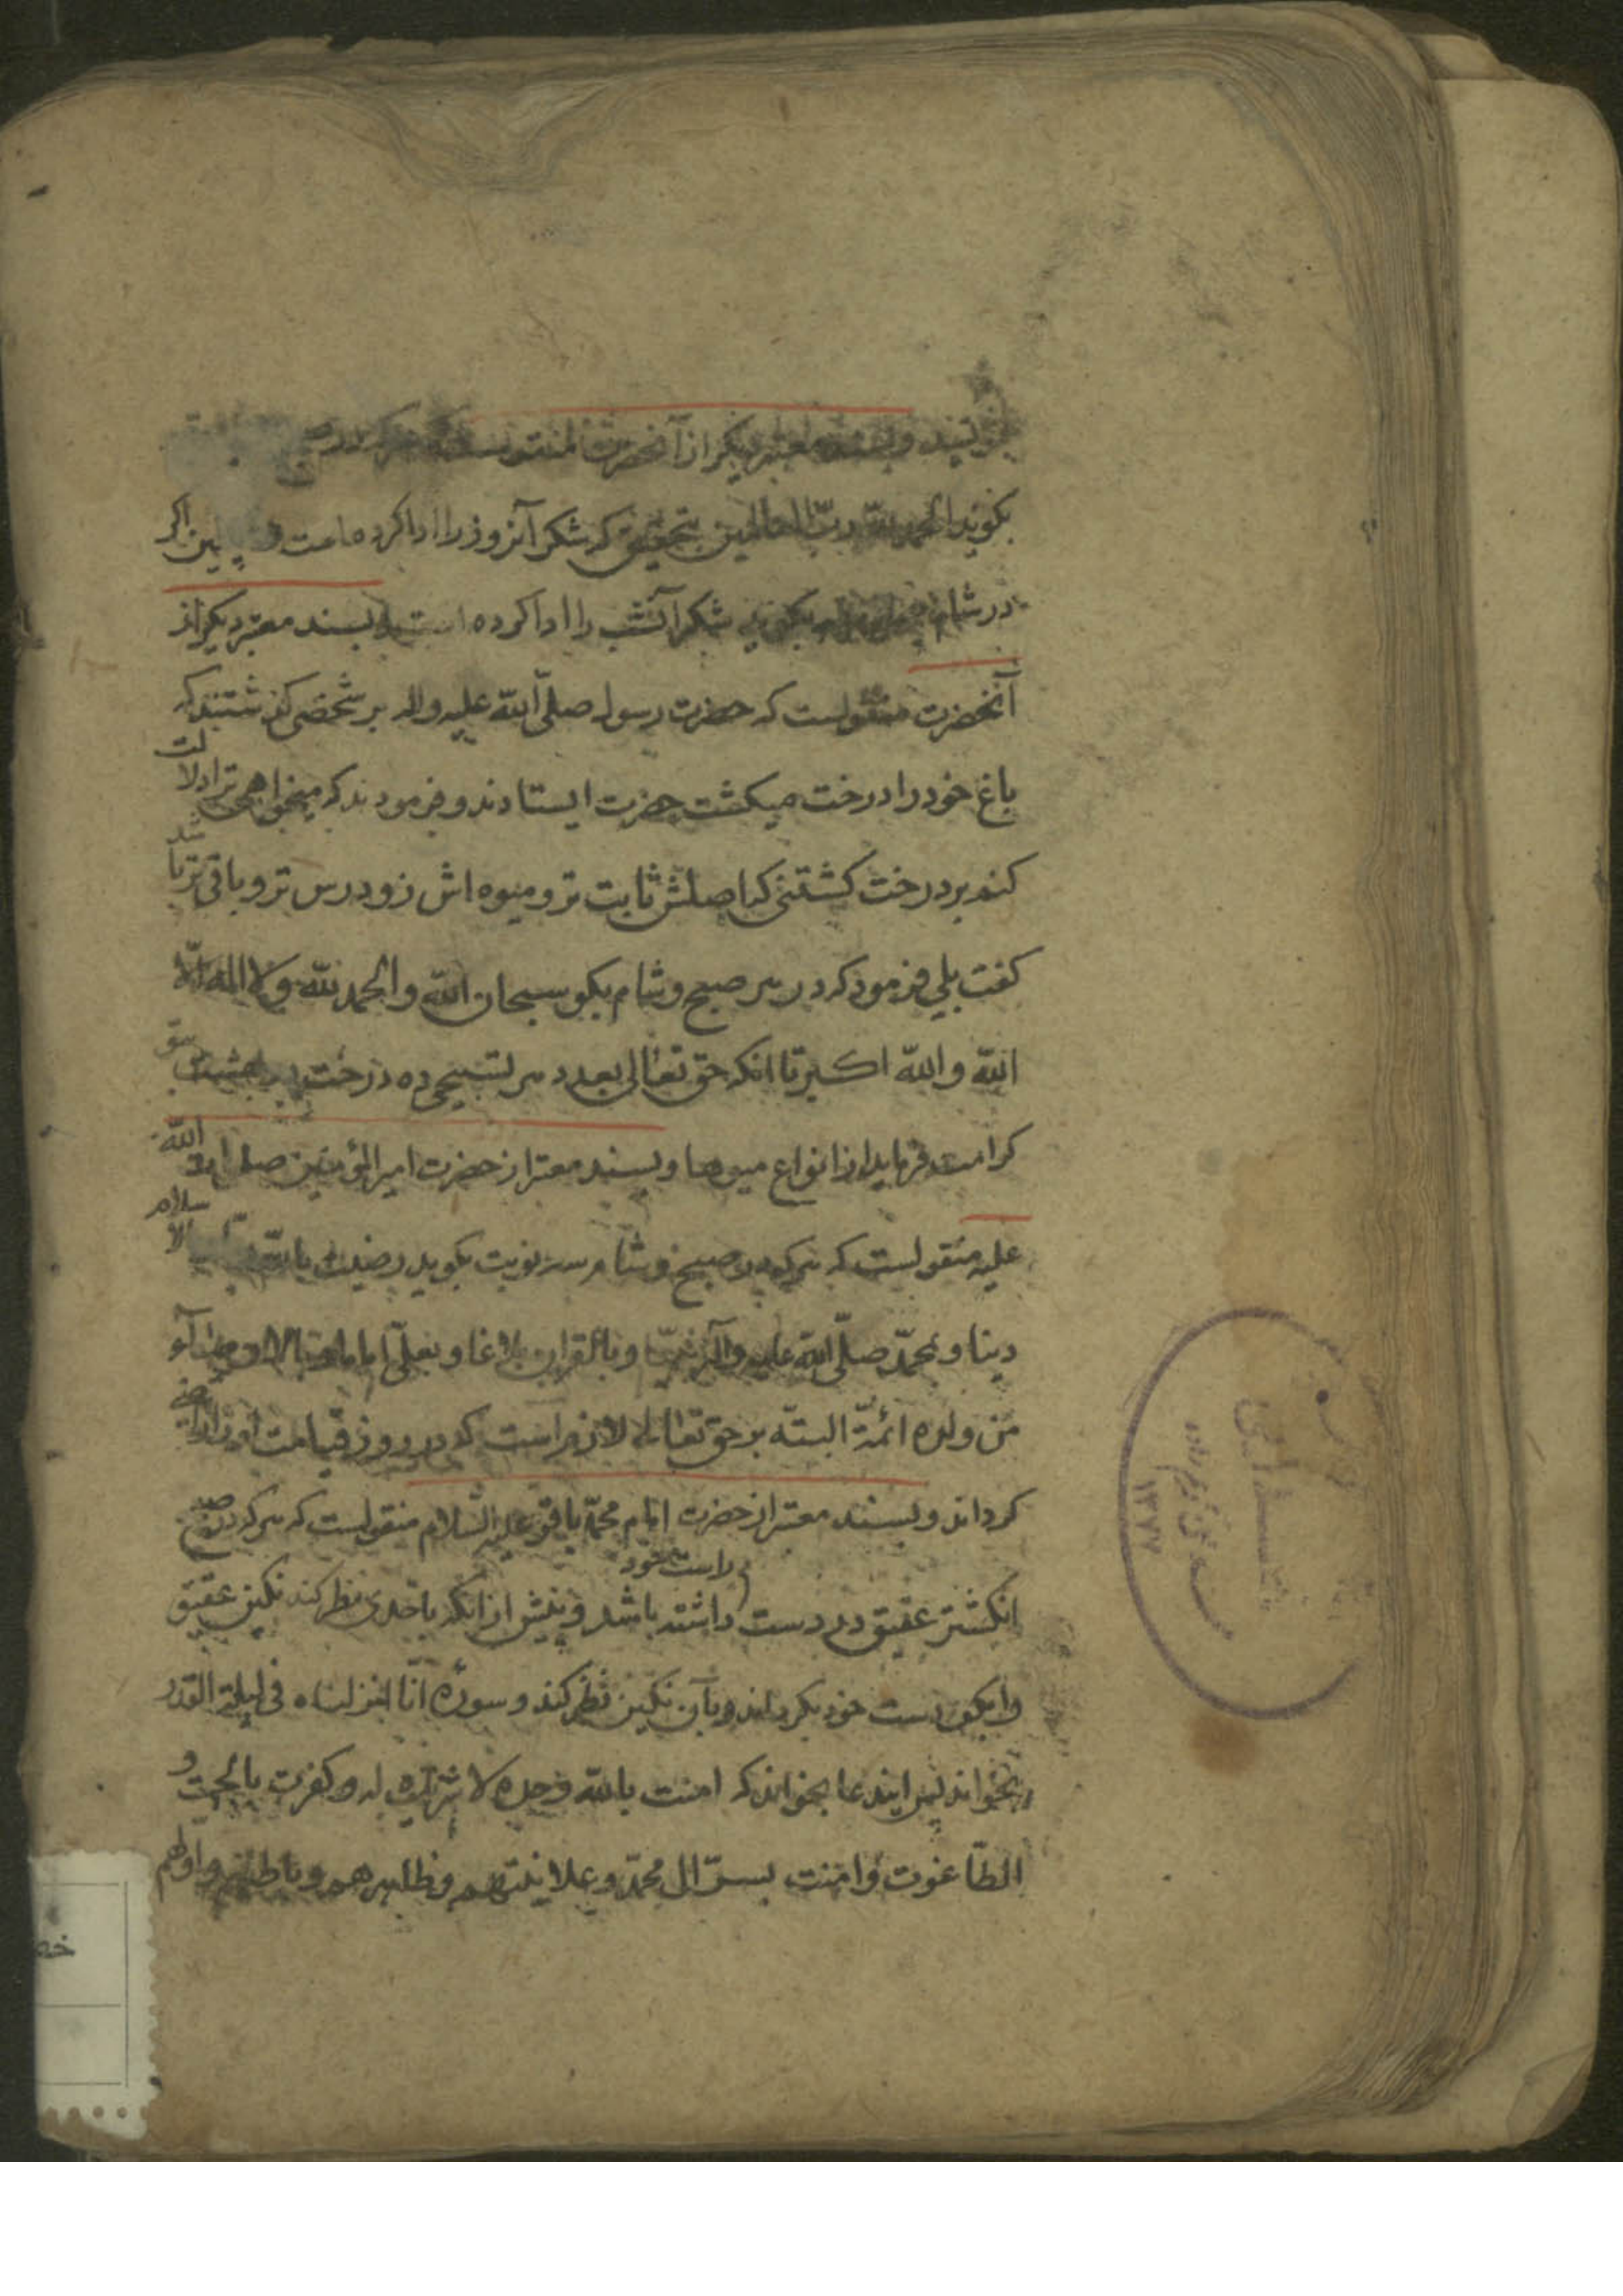 بسند معتبر دیکر از آنحضرت منقولست که هرکه در
بکوید الحمد لله ربّ العالمین بتحقیق که شکر آنروز را ادا کرده است و اکر
در شام بکوید شکر آنشب را ادا کرده است و بسند معتبر دیکر از
آنحضرت منقولست که حضرت رسول صلّی الله علیه واله بر شخصی کذشتند که
باغ خود را درخت میکشت حضرت ایستادند و فرمودند که میخواهی ترا دلالت
کنم بر درخت کشتنی که اصلش ثابت تر و میوه اش زودرس تر و باقی تر باشد
کفت بلی فرمود که در هر صبح و شام بکو سبحان الله والحمد لله ولا اله الّا
الله والله اکبر تا انکه حق تعالی بعدد هر تسبیحی ده درخت در بهشت بتو
کرامت فرماید از انواع میوها و بسند معتبر از حضرت امیر المؤمنین صلوات الله
علیه منقولست که هرکه در صبح و شام سه نوبت بکوید رضیت بالله ربّا وبالاسلام
دینا وبمحمّد صلّی الله علیه وآله نبیّا وبالقران بلاغا وبعلیّ اماما
من ولده ائمّة البتّه بر حق تعالی لازم است که در روز قیامت او را راضی
کرداند و بسند معتبر از حضرت امام محمّد باقر علیه السّلام منقولست که هرکه در صبح
انکشتر عقیق در دست راست خود داشته باشد و پیش از آنکه باحدی نظر کند نکین عقیق
را بکف دست خود بکرداند و بآن نکین نظر کند و سورهٔ انّا انزلناه فی لیلة القدر
بخواند پس ایندعا بخواند که امنت بالله وحده لا شریک له وکفرت بالجبت و
الطّاغوت وامنت بسرّ ال محمّد وعلانیتهم وظاهرهم وباطنهم واوّلهم
۱۳۷۷